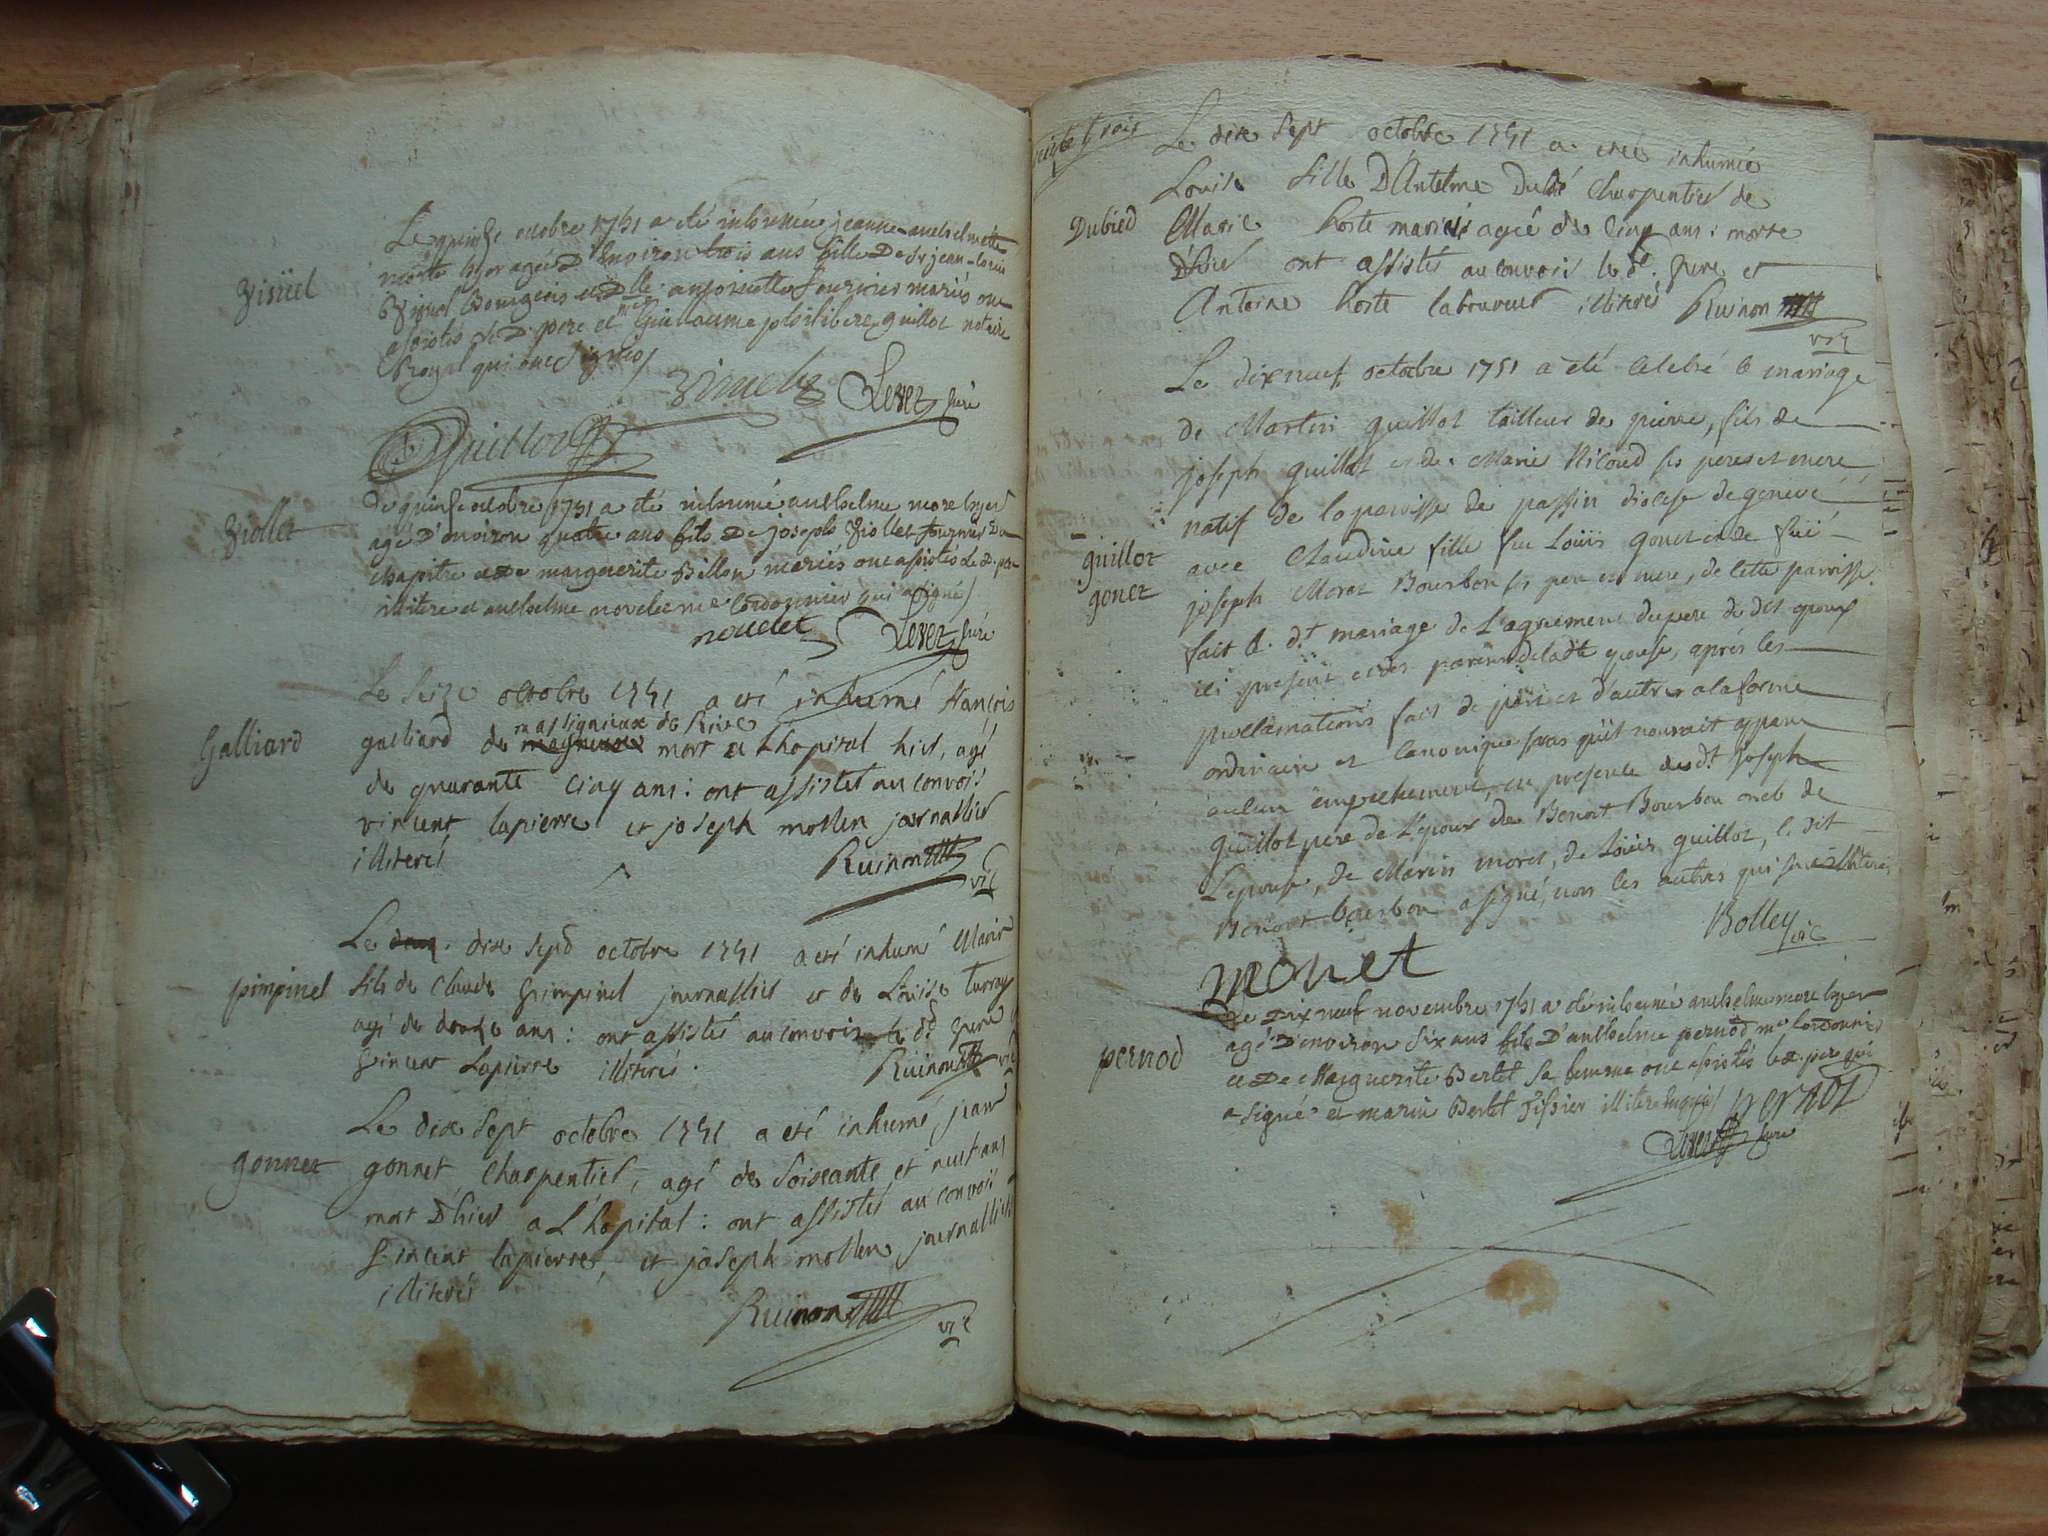 Le quinze octobre 1751 a été inhumée jeanne-anthelmette
morte hyer agée D'Environ trois ans fille De Sr jean-louis
Bourgeois et De Dlle. antoinette mariés ont
assistés le D. pere et Me Guillaume guillot notaire
Royal qui ont signés/
Levet curé
Guillot
Viollet
De quinze octobre 1751 a été inhumé anthelme mort hyer
agé D'Environ quatre ans fils De joseph Viollet fournier Du
chapitre et De marguerite Billon mariés ont assistés Le D. pere
illitere et anthelme novelet me Cordonnier qui a signé/
nouelet Levet curé
Galliard
Le Seize octobre 1751 a eté inhumé françois
massignieux de Rive
galliard de mort a Lhopital hier, agé
de quarante Cinq ans : ont assistes au convois
vincent lapierre et joseph mollen journallier
illiterés Ruinon vic
pimpinel
Le dix Sept octobre 1751 a eté inhumé Marin
fils de Claude pimpinel journallier et de Louise
agé de douze ans : ont assistés au convoi le dt pere
vincent Lapierre illiterés. Ruinon vic
gonnet
Le dix Sept octobre 1751 a eté inhumé jean
gonnet Charpentier, agé de Soixante et neuf ans
mort D'hier a L'hopital : ont assistés au convoi
vincent lapierre, et joseph mollen journalliers
illiterés
Ruinon vic
trois
Le dix Sept octobre 1751 a eteé inhumée
Louise fille D'Antelme Charpentier de
Dubied
Marie horte mariés agée de Cinq ans : morte
D'hier ont assistés au convoi le dt. pere et
Antoine horte laboureur illiterés Ruinon
vic
Le dix neuf octobre 1751 a été Celebré le mariage
de Martin guillot tailleur de pierre, fils de
joseph guillot et de Marie Nicoud ses pere et mere
natif de la paroisse de passin diocese de geneve
guillot
gonet
avec Claudine fille feu Loüis gonet et de
joseph Moret Bourbon ses pere et mere, de Cette paroisse
fait le dt mariage de L'agrement du pere du dit epoux
ici present et des parens de ladte epouse, après les
proclamations fait de part et d'autre a la forme
ordinaire et Canonique sans qu'il nous ait apparu
aucun empechement, en presence du dt joseph
guillot pere de L'epoux de Benoit Bourbon oncle de
L'epouse, de Marin moret, de Loüis guillot, le dit
Benoit bourbon a signé, non les autres qui sont illiterés
Bolley vic
monet
pernod
Le Dix neuf novembre 1751 a été inhumé anthelme mort hyer
agé D'environ Six ans fils D'anthelme pernod me Cordonnier
et De Marguerite Bertet Sa femme ont assistés le D. pere qui
a signé et marin Bertet Tissier illitere pernot
Levet curé